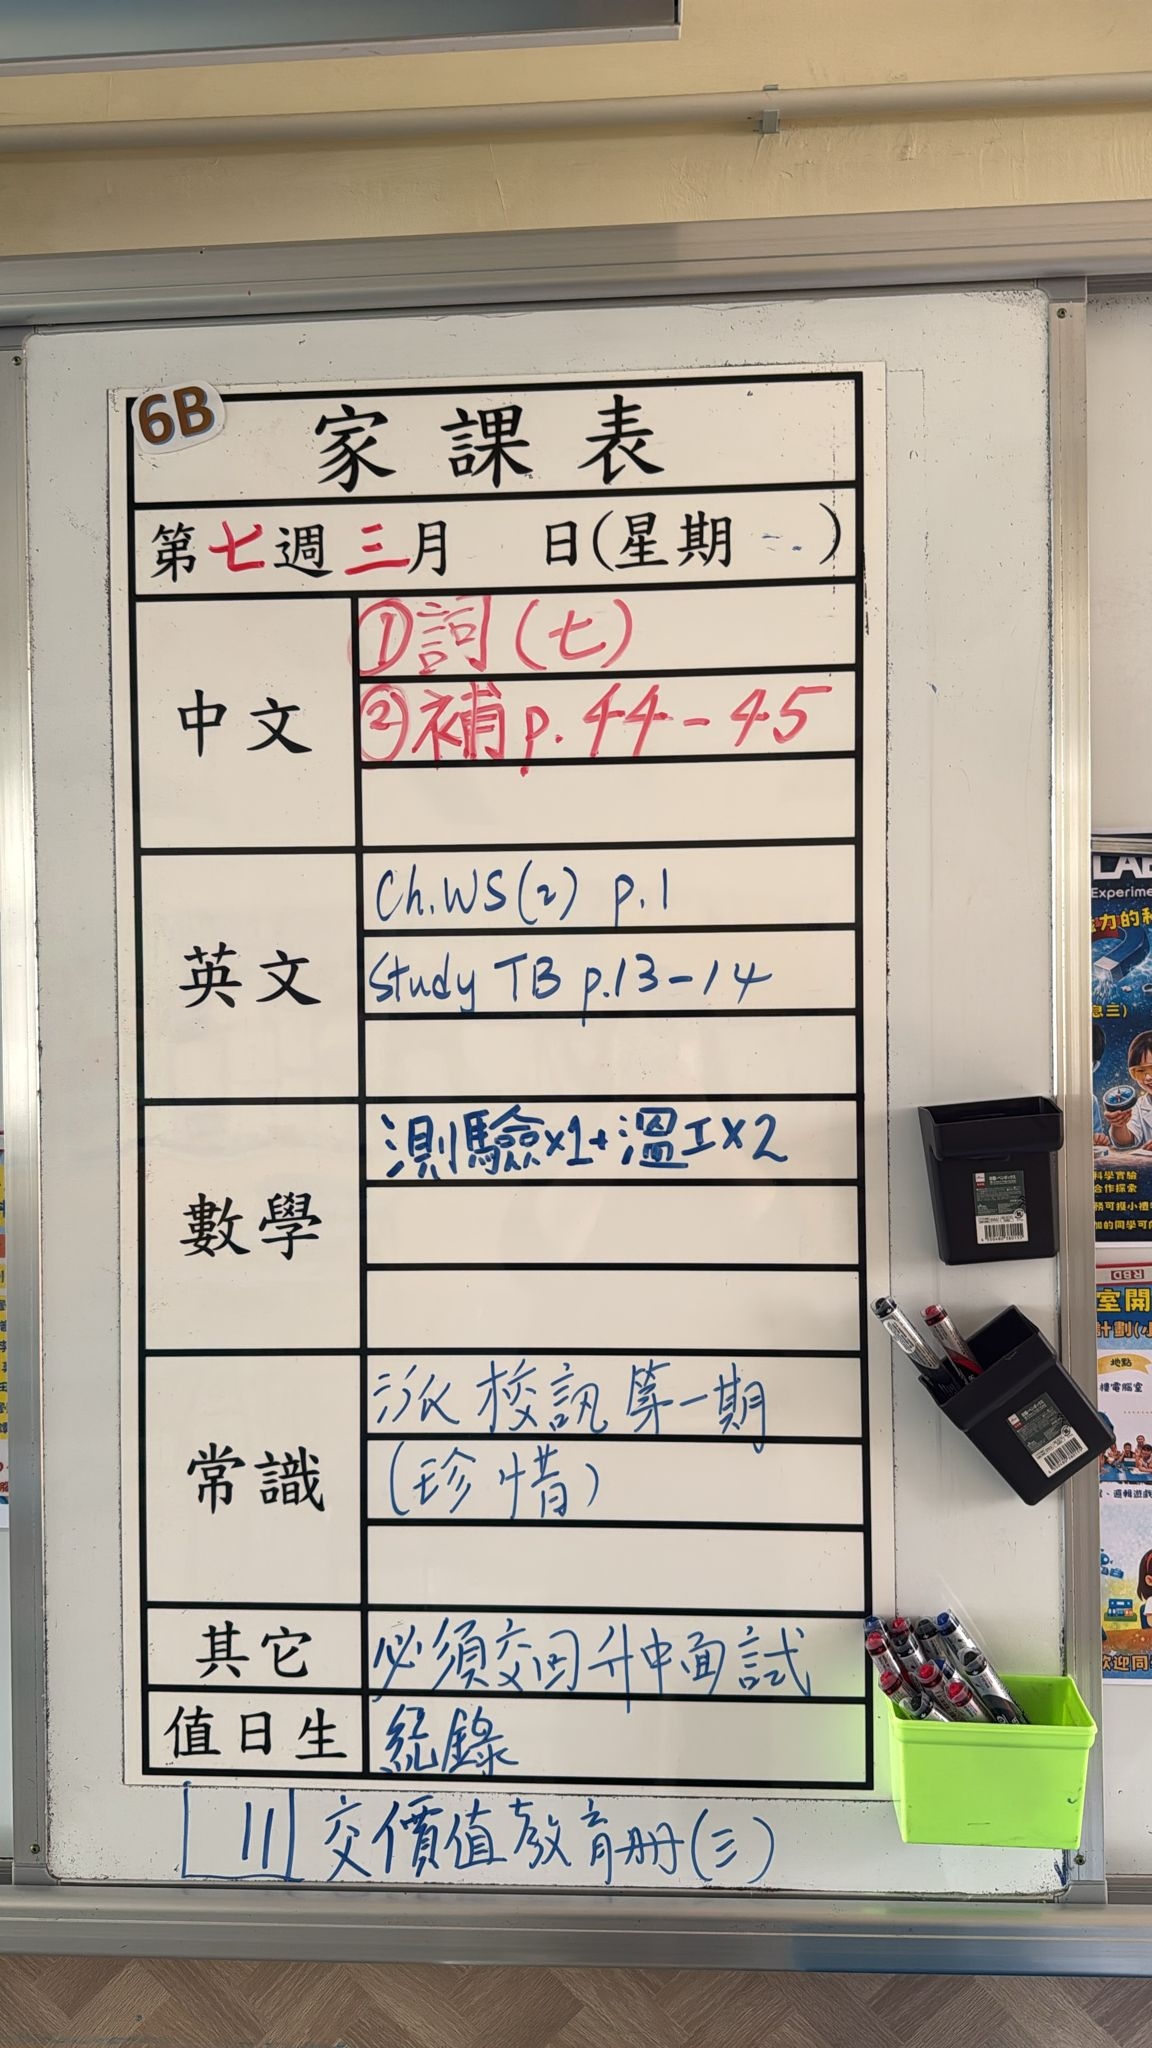 6B
家課表
第七週三月 日(星期 )
中文
①詞(七)
②補p.44-45
英文
Ch.WS(2) p.1
Study TB p.13-14
數學
測驗x1+溫工x2
常識
派校訊第一期
(珍惜)
其它
必須交回升中面試
值日生
紀錄
11 交價值教育册(三)
LAB
Experime
力的科
息三)
科學實驗
合作探索
務可獲小禮
加的同學可
RBD
室開
計劃(小
地點
樓電腦室
、邏輯遊戲
歡迎同